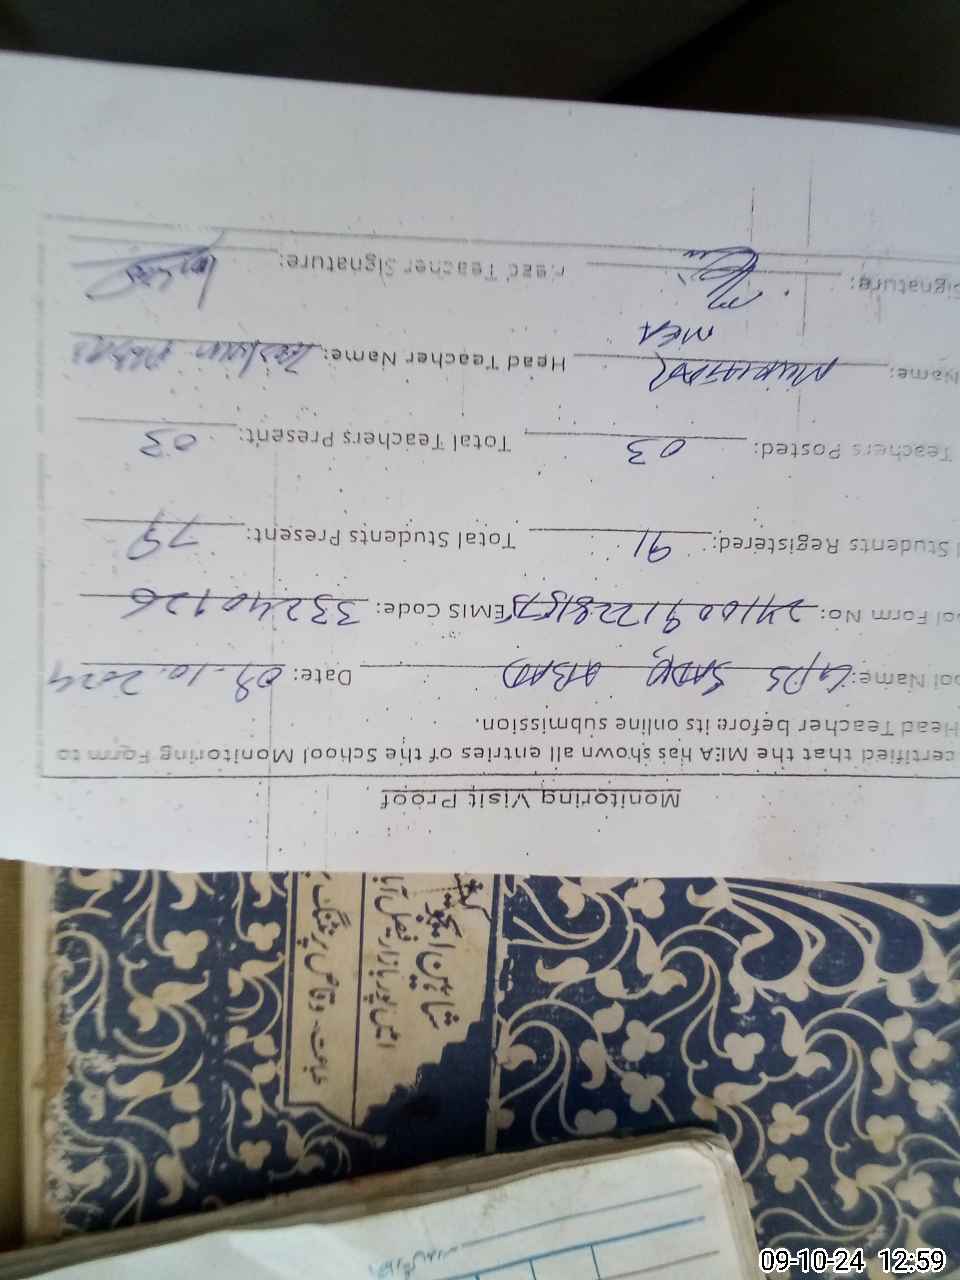 Monitoring Visit Proof
certified that the MEA has shown all entries of the School Monitoring Form to
Head Teacher before its online submission.
ool Name: GPS SADIQ ABAD Date: 09.10.2024
ool Form No: EMIS Code: 33240126
l Students Registered: 91 Total Students Present: 79
Teachers Posted: 03 Total Teachers Present: 03
Name: Head Teacher Name:
MEA
Signature: Head Teacher Signature:
شاہین
امین پور بازار فیصل آباد
طباعت۔ وقاص پرنٹنگ
09-10-24 12:59